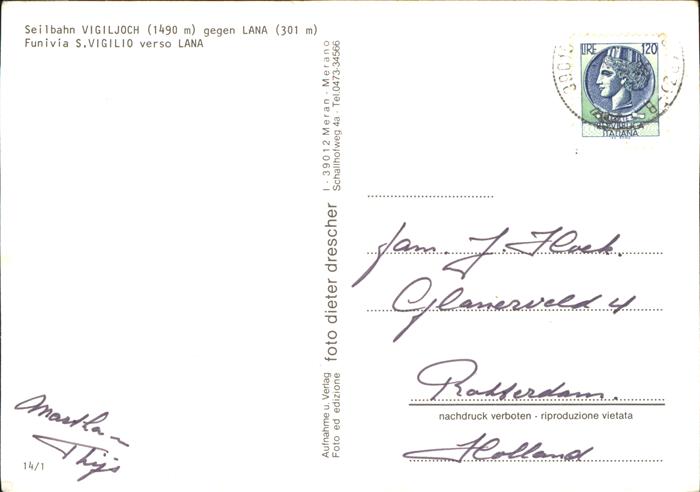 Seilbahn VIGILJOCH (1490 m) gegen LANA (301 m)
Funivia S.VIGILIO verso LANA
LIRE 120
ITALIANA
I - 39012 Meran - Merano
Schallhofweg 4a - Tel.0473-34566
foto dieter drescher
Aufnahme u. Verlag
Foto ed edizione
fam. J. Hoek.
4
Rotterdam.
nachdruck verboten - riproduzione vietata
Holland
Thijs
14/1